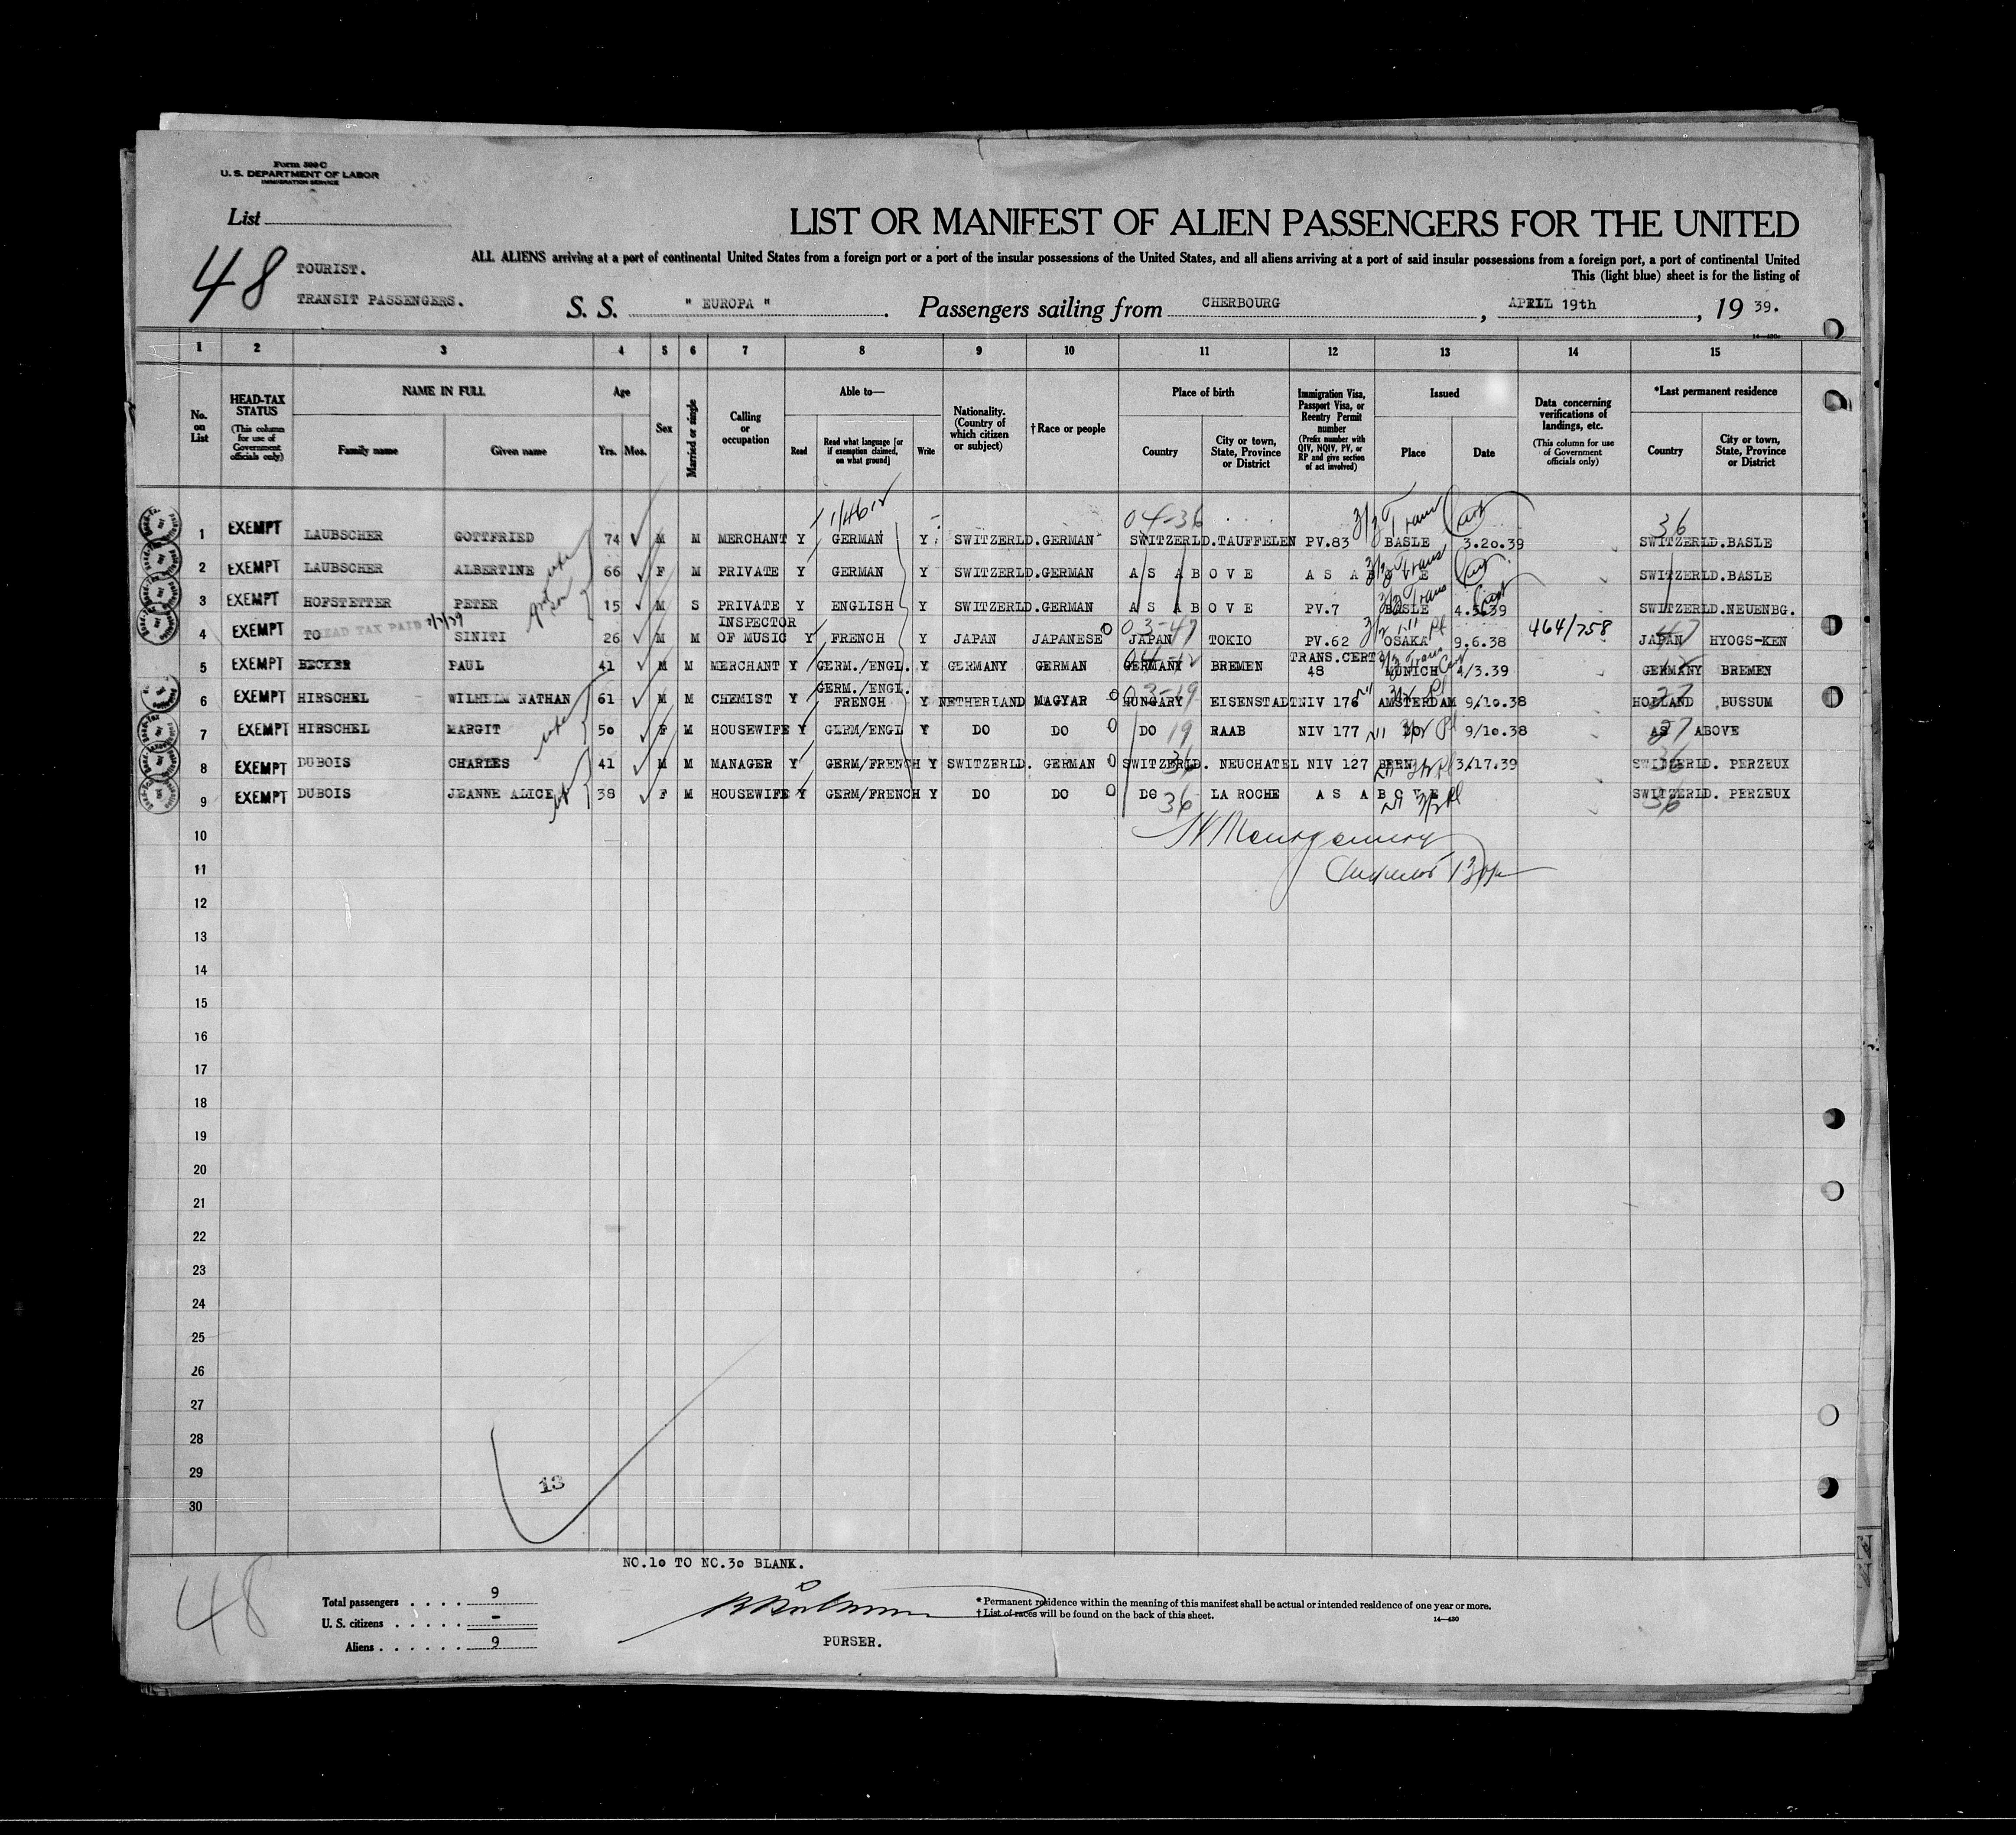 Form 500 C
U. S. DEPARTMENT OF LABOR
IMMIGRATION SERVICE
List
LIST OR MANIFEST OF ALIEN PASSENGERS FOR THE UNITED
48
ALL ALIENS arriving at a port of continental United States from a foreign port or a port of the insular possessions of the United States, and all aliens arriving at a port of said insular possessions from a foreign port, a port of continental United
TOURIST.
This (light blue) sheet is for the listing of
TRANSIT PASSENGERS.
S. S. " EUROPA ". Passengers sailing from CHERBOURG, APRIL 19th, 19 39.
1 2 3 4 5 6 7 8 9 10 11 12 13 14 15
No. on List
HEAD-TAX STATUS (This column for use of Government officials only)
NAME IN FULL
Family name
Given name
Age
Yrs. Mos.
Sex
Married or single
Calling or occupation
Able to—
Read
Read what language [or if exemption claimed, on what ground]
Write
Nationality. (Country of which citizen or subject)
†Race or people
Place of birth
Country
City or town, State, Province or District
Immigration Visa, Passport Visa, or Reentry Permit number (Prefix number with QIV, NQIV, PV, or RP and give section of act involved)
Issued
Place
Date
Data concerning verifications of landings, etc. (This column for use of Government officials only)
*Last permanent residence
Country
City or town, State, Province or District
04-36 36
1 EXEMPT LAUBSCHER GOTTFRIED 74 M M MERCHANT Y GERMAN Y SWITZERLD. GERMAN SWITZERLD. TAUFFELEN PV.83 BASLE 3.20.39 SWITZERLD. BASLE
2 EXEMPT LAUBSCHER ALBERTINE wife 66 F M PRIVATE Y GERMAN Y SWITZERLD. GERMAN AS ABOVE AS ABOVE SWITZERLD. BASLE
3 EXEMPT HOFSTETTER PETER 15 M S PRIVATE Y ENGLISH Y SWITZERLD. GERMAN AS ABOVE PV.7 BASLE 4.5.39 SWITZERLD. NEUENBG.
4 EXEMPT TO HEAD TAX PAID SINITI 26 M M INSPECTOR OF MUSIC Y FRENCH Y JAPAN JAPANESE 03-47 JAPAN TOKIO PV.62 OSAKA 9.6.38 464/758 JAPAN 47 HYOGS-KEN
5 BECKER PAUL 41 M M MERCHANT Y GERM./ENGL. Y GERMANY GERMAN GERMANY BREMEN TRANS.CERT 48 MUNICH 4/3.39 GERMANY BREMEN
6 EXEMPT HIRSCHEL WILHELM NATHAN 61 M M CHEMIST Y GERM./ENGL. FRENCH Y NETHERLAND MAGYAR 03-19 HUNGARY EISENSTADT NIV 176 AMSTERDAM 9/10.38 HOLLAND 27 BUSSUM
7 EXEMPT HIRSCHEL MARGIT wife 50 F M HOUSEWIFE Y GERM/ENGL Y DO DO DO 19 RAAB NIV 177 DO 9/10.38 AS ABOVE 27
8 EXEMPT DUBOIS CHARLES 41 M M MANAGER Y GERM/FRENCH Y SWITZERLD. GERMAN SWITZERLD. 36 NEUCHATEL NIV 127 BERN 3/17.39 SWITZERLD. 36 PERZEUX
9 EXEMPT DUBOIS JEANNE ALICE 38 F M HOUSEWIFE Y GERM/FRENCH Y DO DO DO 36 LA ROCHE AS ABOVE SWITZERLD. 36 PERZEUX
10
11
12
13
14
15
16
17
18
19
20
21
22
23
24
25
26
27
28
29
13
30
NO.10 TO NO.30 BLANK.
48
Total passengers . . . . 9
U. S. citizens . . . . . -
Aliens . . . . . . 9
* Permanent residence within the meaning of this manifest shall be actual or intended residence of one year or more.
† List of races will be found on the back of this sheet.
14—430
PURSER.